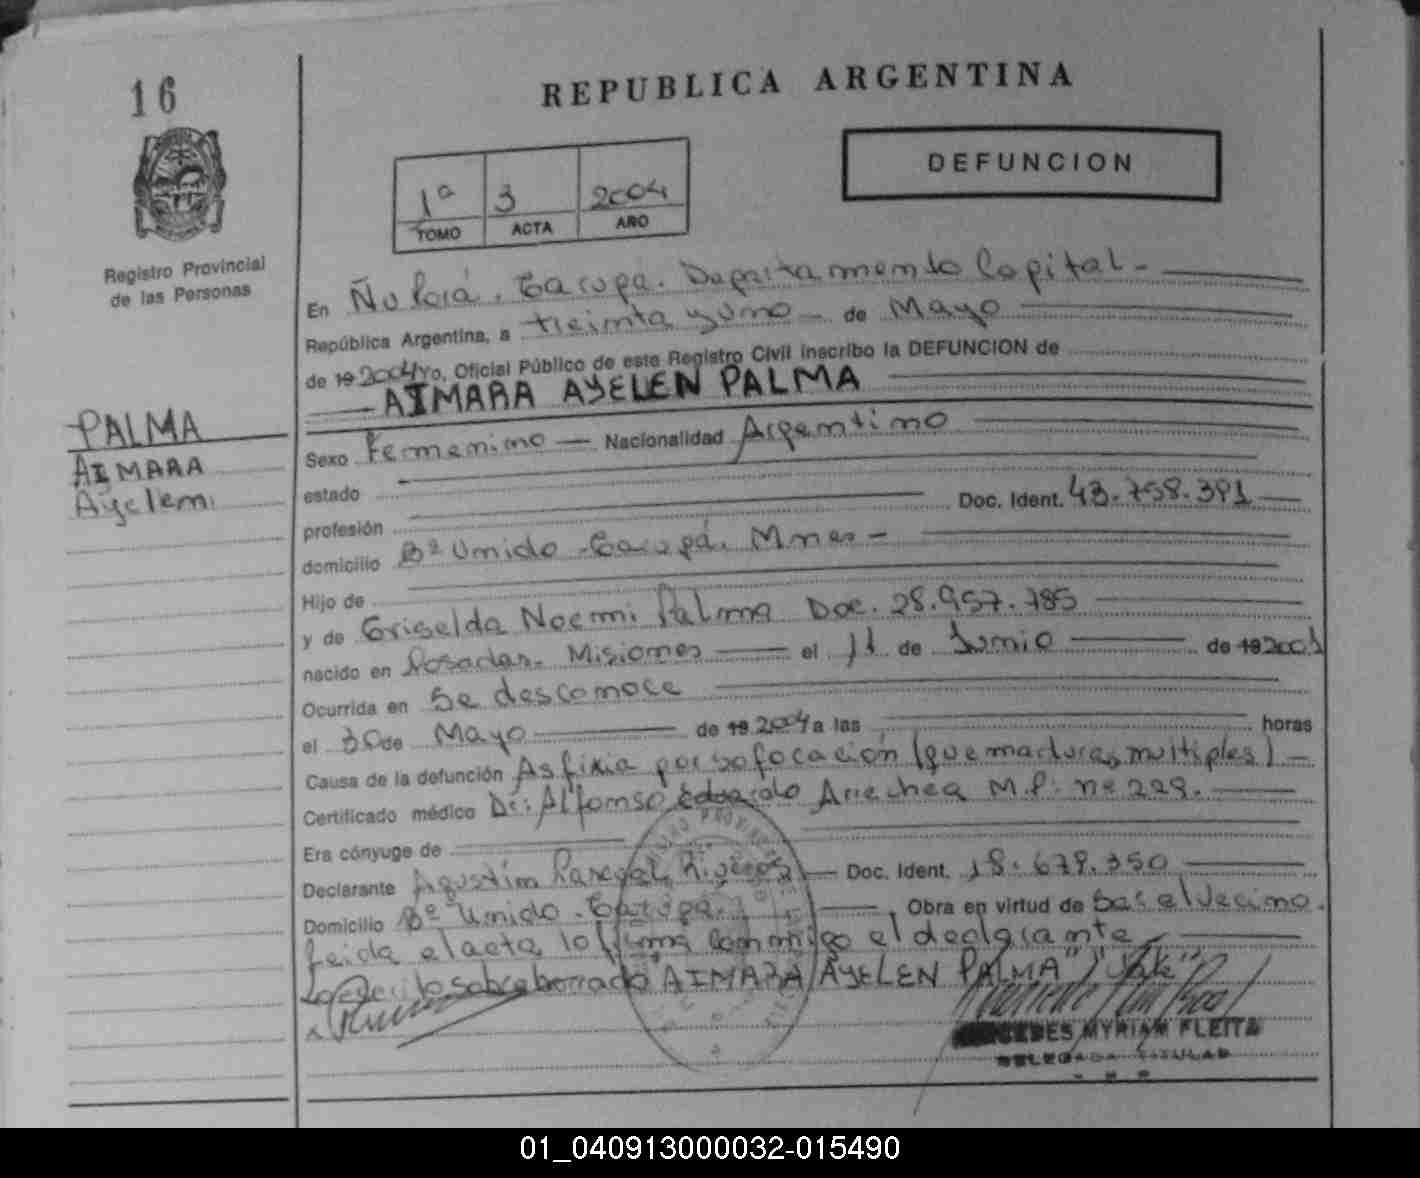 16
REPUBLICA ARGENTINA
DEFUNCION
1ª 3 2004
TOMO ACTA AÑO
Registro Provincial
de las Personas
En Garupá. Departamento Capital -
República Argentina, a treinta y uno - de Mayo
de 19 2004 Yo, Oficial Público de este Registro Civil inscribo la DEFUNCION de
AIMARA AYELEN PALMA
PALMA
AIMARA
Ayelem
Sexo Femenino — Nacionalidad Argentino
estado
profesión Doc. Ident. 43.758.391
domicilio Bº Unido - Garupá. Mnes -
Hijo de
y de Griselda Noemi Palma Doc. 28.957.785
nacido en Posadas - Misiones el 11 de Junio de 19 2001
Ocurrida en Se desconoce
el 30 de Mayo de 19 2004 a las horas
Causa de la defunción Asfixia por sofocación (quemaduras multiples) -
Certificado médico Dr: Alfonso Eduardo Arrechea M.P: nº 229.
Era cónyuge de
Declarante Agustín Doc. Ident. 18.679.350
Domicilio Bº Unido - Garupá. , Obra en virtud de
Leida el acta lo firma conmigo el declarante
lo sobreborrado "AIMARA AYELEN PALMA" "Vale"
MYRIAM FLEITA
DELEGADA TITULAR
01_040913000032-015490